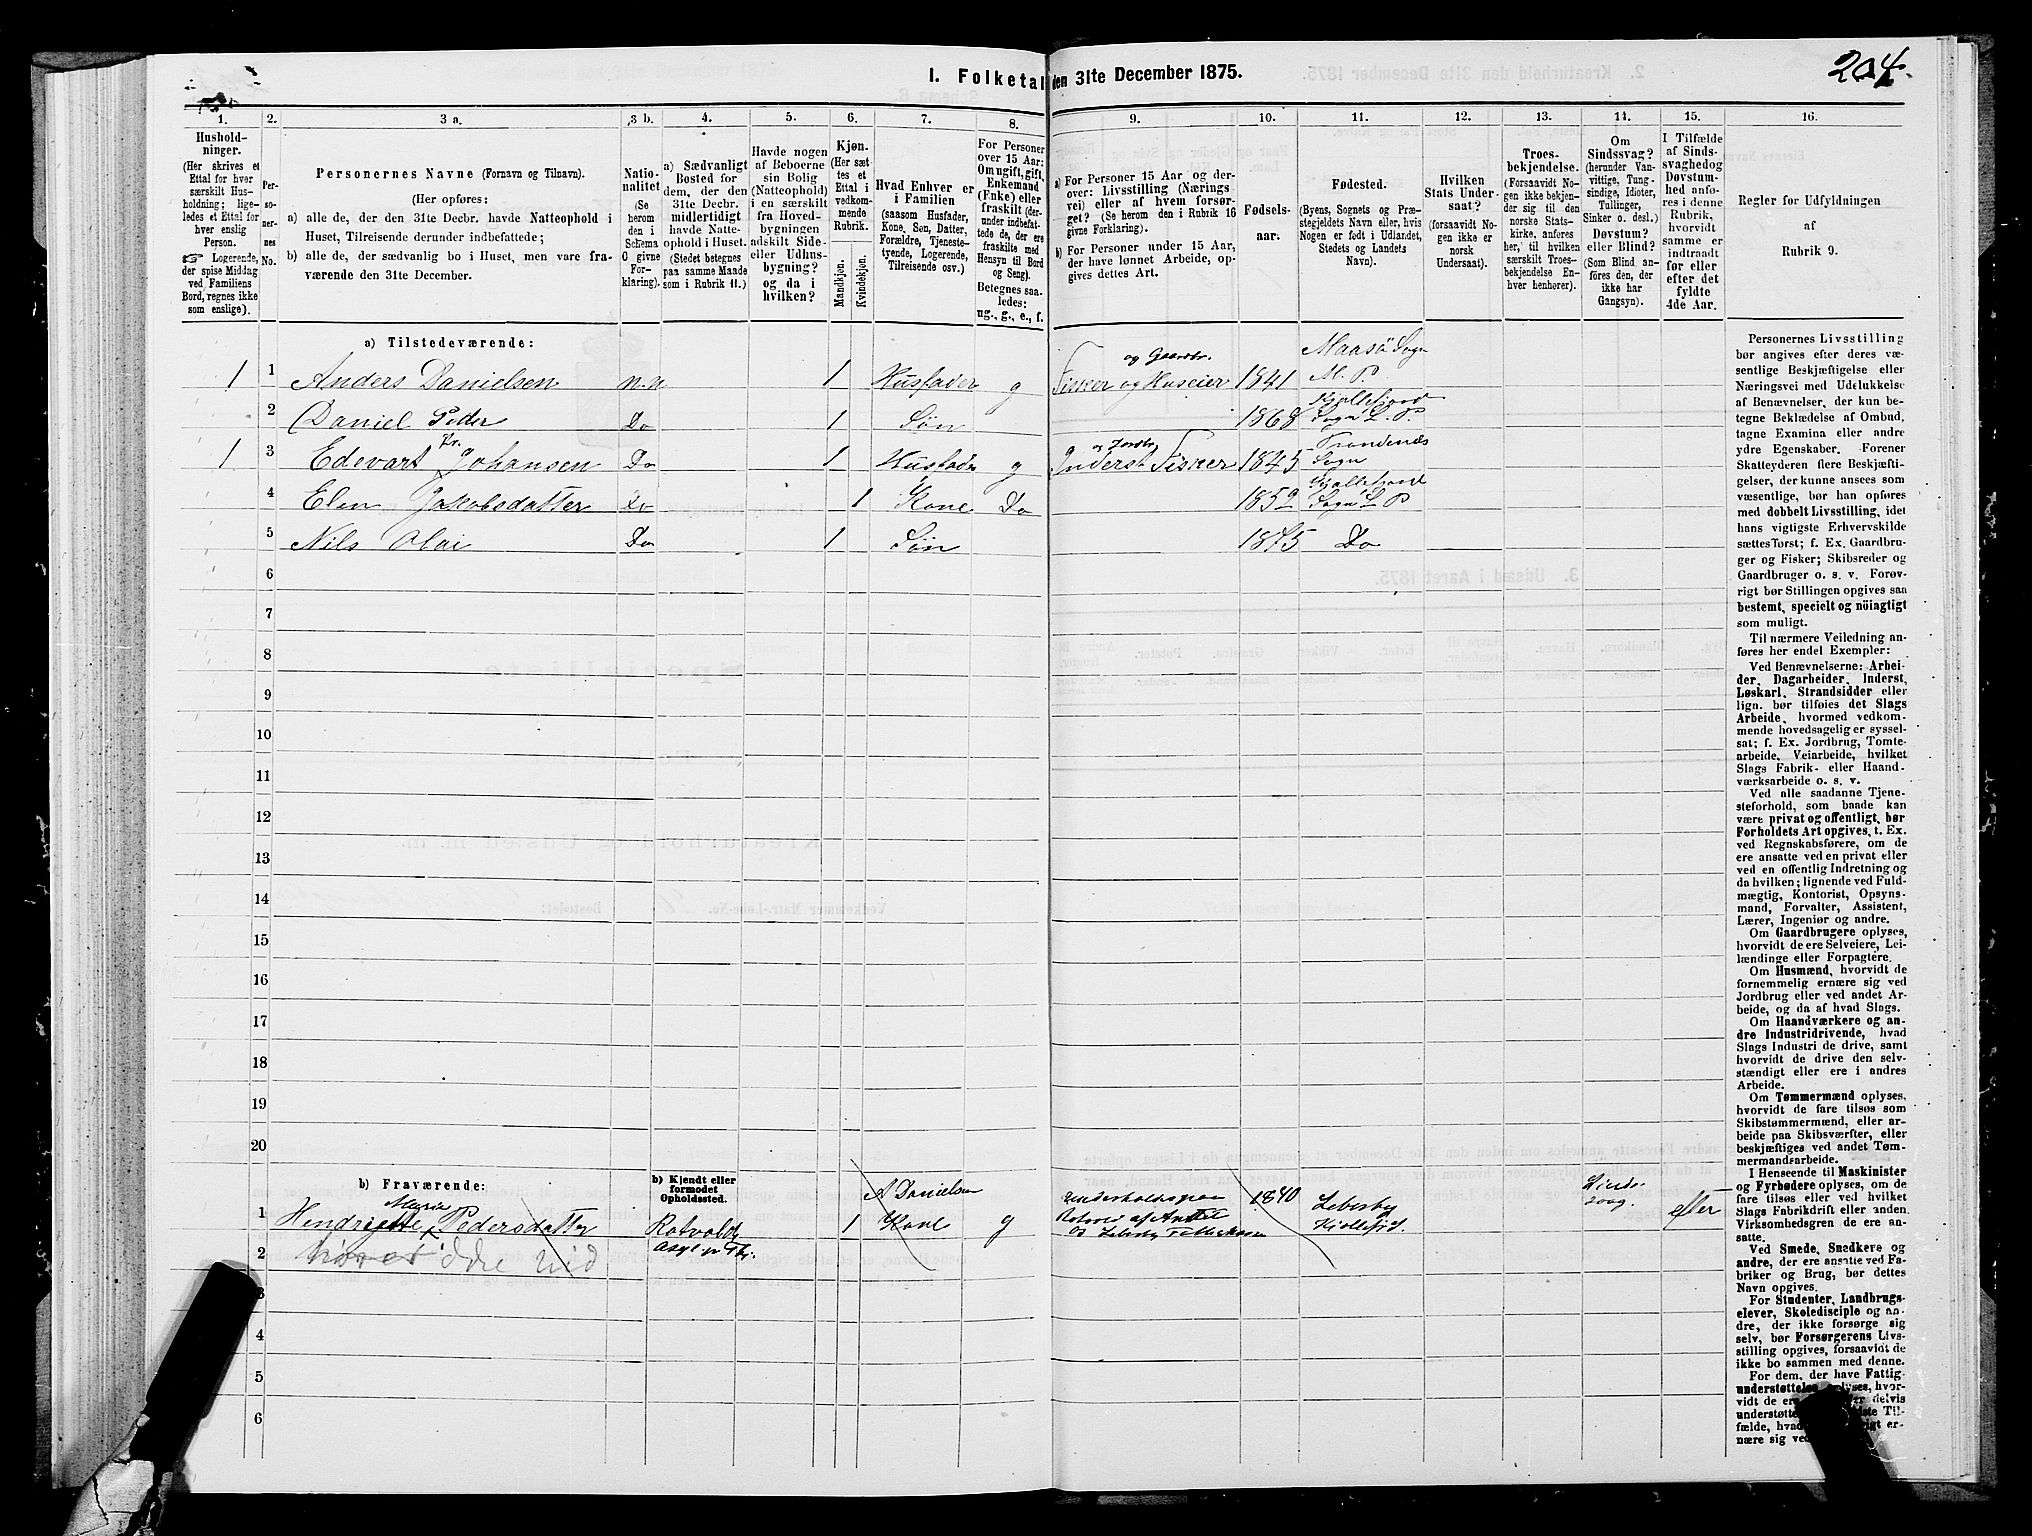 I. Folketal den 31te December 1875.
204.
1.
Hushold-
ninger.
(Her skrives et
Ettal for hver
særskilt Hus-
holdning; lige-
ledes et Ettal for
hver enslig
Person.
Logerende,
der spise Middag
ved Familiens
Bord, regnes ikke
som enslige).
2.
Per-
so-
ner-
nes
No.
3 a.
Personernes Navne (Fornavn og Tilnavn).
(Her opføres:
a) alle de, der den 31te Decbr. havde Natteophold i
Huset, Tilreisende derunder indbefattede;
b) alle de, der sædvanlig bo i Huset, men vare fra-
værende den 31te December.
3 b.
Natio-
nalitet
(Se
herom
den i
Schema
C givne
For-
klaring).
4.
a) Sædvanligt
Bosted for
dem, der den
31te Decbr.
midlertidigt
havde Natte-
ophold i Huset.
(Stedet betegnes
paa samme Maade
som i Rubrik 11.)
5.
Havde nogen
af Beboerne
sin Bolig
(Natteophold)
i en særskilt
fra Hoved-
bygningen
adskilt Side-
eller Udhus-
bygning?
og da i
hvilken?
6.
Kjøn.
(Her sæt-
tes et
Ettal i
vedkom-
mende
Rubrik.
Mandkjøn.
Kvindekjøn.
7.
Hvad Enhver er
i Familien
(saasom Husfader,
Kone, Søn, Datter,
Forældre, Tjeneste-
tyende, Logerende,
Tilreisende osv.)
8.
For Personer
over 15 Aar:
Om ugift, gift,
Enkemand
(Enke) eller
fraskilt (der-
under indbefat-
tede de, der ere
fraskilte med
Hensyn til Bord
og Seng).
Betegnes saa-
ledes:
ug., g., e., f.
9.
a) For Personer 15 Aar og der-
over: Livsstilling (Nærings
vei) eller af hvem forsør-
get? (Se herom den i Rubrik 16
givne Forklaring).
b) For Personer under 15 Aar,
der have lønnet Arbeide, op-
gives dettes Art.
10.
Fødsels-
aar.
11.
Fødested.
(Byens, Sognets og Præ-
stegjeldets Navn eller, hvis
Nogen er født i Udlandet,
Stedets og Landets
Navn).
12.
Hvilken
Stats Under-
saat?
(forsaavidt No-
gen ikke er
norsk
Undersaat).
13.
Troes-
bekjendelse.
(Forsaavidt No-
gen ikke bekjen-
der sig til den
norske Stats-
kirke, anføres
her, til hvilken
særskilte Troes-
bekjendelse En-
hver henhører).
14.
Om
Sindssvag?
(herunder Van-
vittige, Tung-
sindige, Idioter,
Tullinger,
Sinker o. desl.)
Døvstum?
eller Blind?
(Som Blind an-
føres den, der
ikke har
Gangsyn).
15.
I Tilfælde
af Sinds-
svaghed og
Døvstum-
hed anfø-
res i denne
Rubrik,
hvorvidt
samme er
indtraadt
før eller
efter det
fyldte
4de Aar.
16.
Regler for Udfyldningen
af
Rubrik 9.
a) Tilstedeværende:
1 1 Anders Danielsen n.n 1 Husfader g Fisker og Huseier og Gaardbr. 1841 Maasö Sogn M. P.
2 Daniel Peder Do 1 Søn 1868 Kjøllefjord Sogn L. P.
1 3 Edevart Johansen Do 1 Husfader g Inderst Fisker 1845 Trondenæs Sogn
4 Elen Jakobsdatter Do 1 Kone Do 1852 Kjøllefjord Sogn L P
5 Nils Olai Do 1 Søn 1875 Do
6
7
8
9
10
11
12
13
14
15
16
17
18
19
20
b) Fraværende:
b) Kjendt eller
formodet
Opholdssted.
1 Henriette Maria Pedersdatter Rotvold 1 A Danielsen Kone g 1840 Lebesby Kjøllefjd. Sinds- svag. efter
2
3
4
5
6
Personernes Livsstilling
bør angives efter deres væ-
sentlige Beskjæftigelse eller
Næringsvei med Udelukkelse
af Benævnelser, der kun be-
tegne Beklædelse af Ombud,
tagne Examina eller andre
ydre Egenskaber. Forener
Skatteyderen flere Beskjæfti-
gelser, der kunne ansees som
væsentlige, bør han opføres
med dobbelt Livsstilling, idet
hans vigtigste Erhvervskilde
sættes først; f. Ex. Gaardbru-
ger og Fisker; Skibsreder og
Gaardbruger o. s. v. Forøv-
rigt bør Stillingen opgives saa
bestemt, specielt og nøiagtigt
som muligt.
Til nærmere Veiledning an-
føres her endel Exempler:
Ved Benævnelserne: Arbei-
der, Dagarbeider, Inderst,
Løskarl, Strandsidder eller
lign. bør tilføies det Slags
Arbeide, hvormed vedkom-
mende hovedsagelig er syssel-
sat; f. Ex. Jordbrug, Tomte-
arbeide, Veiarbeide, hvilket
Slags Fabrik- eller Haand-
værksarbeide o. s. v.
Ved alle saadanne Tjene-
steforhold, som baade kan
være privat og offentligt, bør
Forholdets Art opgives, t. Ex.
ved Regnskabsførere, om de
ere ansatte ved en privat eller
ved en offentlig Indretning og
da hvilken; lignende ved Fuld-
mægtig, Kontorist, Opsyns-
mand, Forvalter, Assistent,
Lærer, Ingeniør og andre.
Om Gaardbrugere oplyses,
hvorvidt de ere Selveiere, Lei-
lændinge eller Forpagtere.
Om Husmænd, hvorvidt de
fornemmelig ernære sig ved
Jordbrug eller ved andet Ar-
beide, og da af hvad Slags.
Om Haandværkere og an-
dre Industridrivende, hvad
Slags Industri de drive, samt
hvorvidt de drive den selv-
stændigt eller ere i andres
Arbeide.
Om Tømmermænd oplyses,
hvorvidt de fare tilsøs som
Skibstømmermænd, eller ar-
beide paa Skibsværfter, eller
beskjæftiges ved andet Tøm-
mermandsarbeide.
I Henseende til Maskinister
og Fyrbødere oplyses, om de
fare tilsøs eller ved hvilket
Slags Fabrikdrift eller anden
Virksomhedsgren de ere an-
satte.
Ved Smede, Snedkere og
andre, der ere ansatte ved Fa-
briker og Brug, bør dettes
Navn opgives.
For Studenter, Landbrugs-
elever, Skoledisciple og an-
dre, der ikke forsørge sig
selv, bør Forsørgerens Livs-
stilling opgives, forsaavidt de
ikke bo sammen med denne.
For dem, der have Fattig-
understøttelse oplyses, hvor-
vidt de ere
understøtte
fælde, hvad
nære sig ved